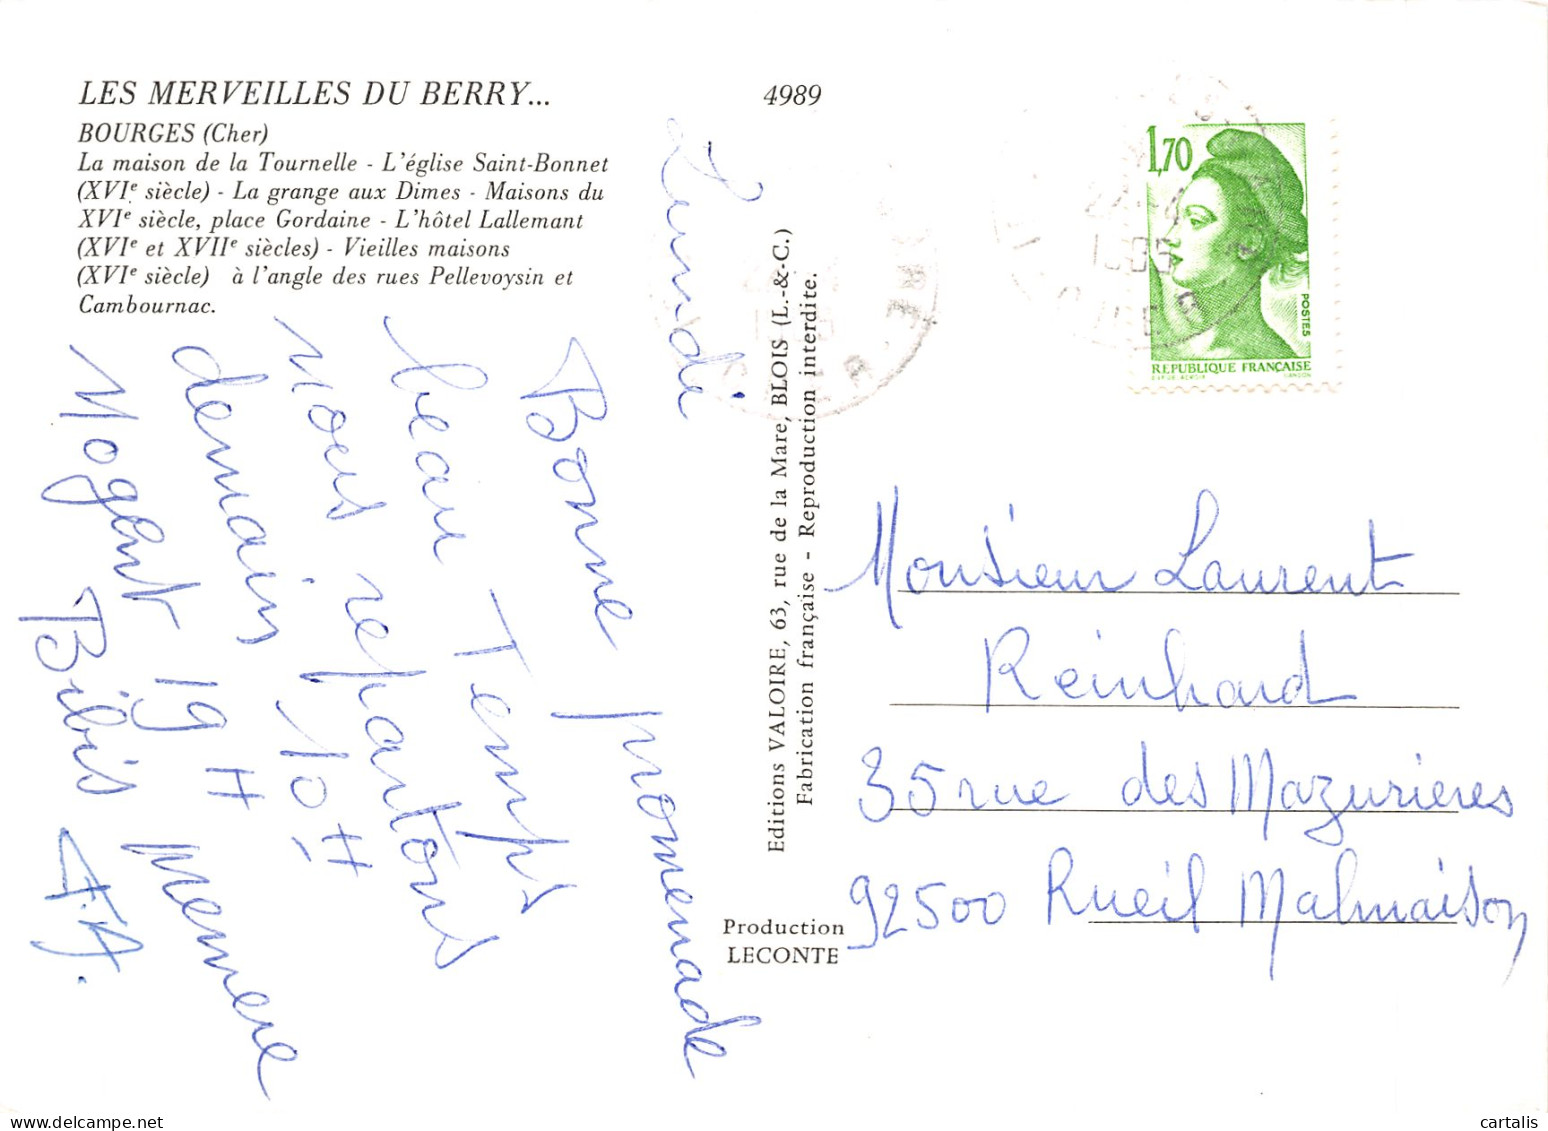 LES MERVEILLES DU BERRY...
BOURGES (Cher)
La maison de la Tournelle - L'église Saint-Bonnet
(XVIe siècle) - La grange aux Dimes - Maisons du
XVIe siècle, place Gordaine - L'hôtel Lallemant
(XVIe et XVIIe siècles) - Vieilles maisons
(XVIe siècle) à l'angle des rues Pellevoysin et
Cambournac.
4989
Lundi
Bonne promenade
beau Temps
nous repartons
demain 10 H
Nogent 19 H memere
Bibis
Editions VALOIRE, 63, rue de la Mare, BLOIS (L.-&-C.)
Fabrication française - Reproduction interdite.
Production
LECONTE
1,70
POSTES
REPUBLIQUE FRANÇAISE
Monsieur Laurent
Reinhard
35 rue des Mazurieres
92500 Rueil Malmaison
cartalis